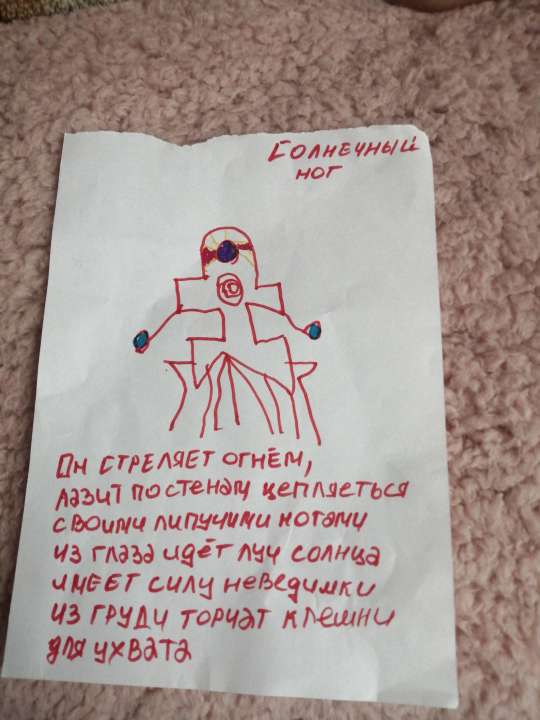 Солнечный
ног
Он стреляет огнём,
лазит по стенам цепляеться
своими липучими ногами
из глаза идёт луч солнца
имеет силу неведимки
из груди торчат клешни
для ухвата